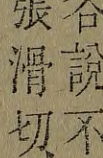 說不
張滑切